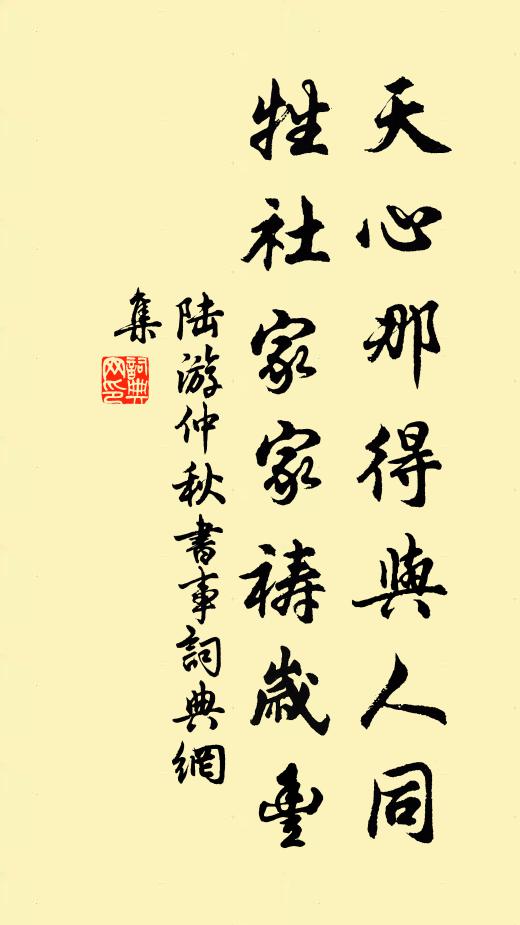 天心那得與人同
牲社家家禱歲豐
陸游仲秋書事詞典網
集
詞典
网印